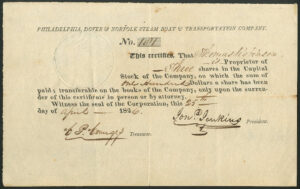 PHILADELPHIA, DOVER & NORFOLK STEAM BOAT & TRANSPORTATION COMPANY.
No.
This certifies, That Thomas
is Proprietor of
shares in the Capital
Stock of the Company, on which the sum of
One Hundred Dollars a share has been
paid; transferable on the books of the Company, only upon the surren-
der of this certificate in person or by attorney.
Witness the seal of the Corporation, this 25th
day of April 184
Jon. Jenkins President.
Treasurer.